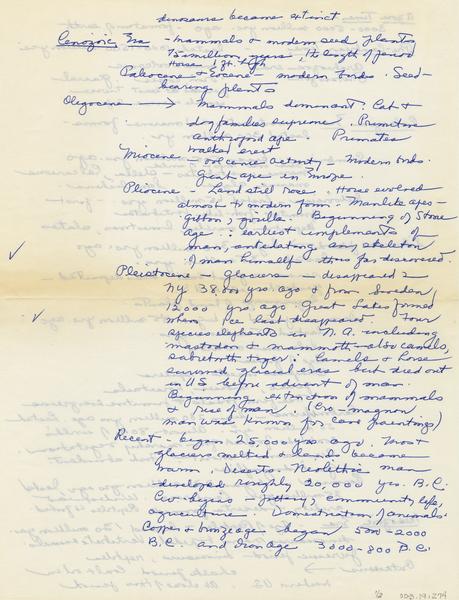 dinosaurs became extinct
Cenozoic Era - mammals & modern seed plants
75 million years, the length of period
Horse 1 ft. high
Paleocene & Eocene - modern birds. Seed-
bearing plants
Oligocene → Mammals dominant: Cat &
dog families supreme. Primitive
anthropoid ape. Primates
walked erect
Miocene - volcanic activity - Modern birds.
Great ape in Europe.
Pliocene - Land still rose. Horse evolved
almost to modern form. Manlike apes -
gibbon, gorilla. Beginning of Stone
age: earliest implements of
man, antedating any skeleton
of man himself thus far discovered.
Pleistocene - Glaciers - disappeared in
NY 38000 yrs. ago & from Sweden
12000 yrs. ago. Great Lakes formed
when ice last disappeared. Four
species elephants in N.A. including
mastodon & mammoth - also camels,
sabretooth tiger; Camels & horse
survived glacial eras but died out
in US before advent of man.
Beginning extinction of mammals
& rise of man. (Cro-magnon
man was known for cave paintings)
Recent - began 25,000 yrs. ago. Most
glaciers melted & land became
warm. Deserts. Neolithic man
developed roughly 20,000 yrs. B.C.
begins - pottery, community life,
agriculture. Domestication of animals.
Copper & bronze age began 5000-2000
B.C. and Iron age 3000-800 B.C.